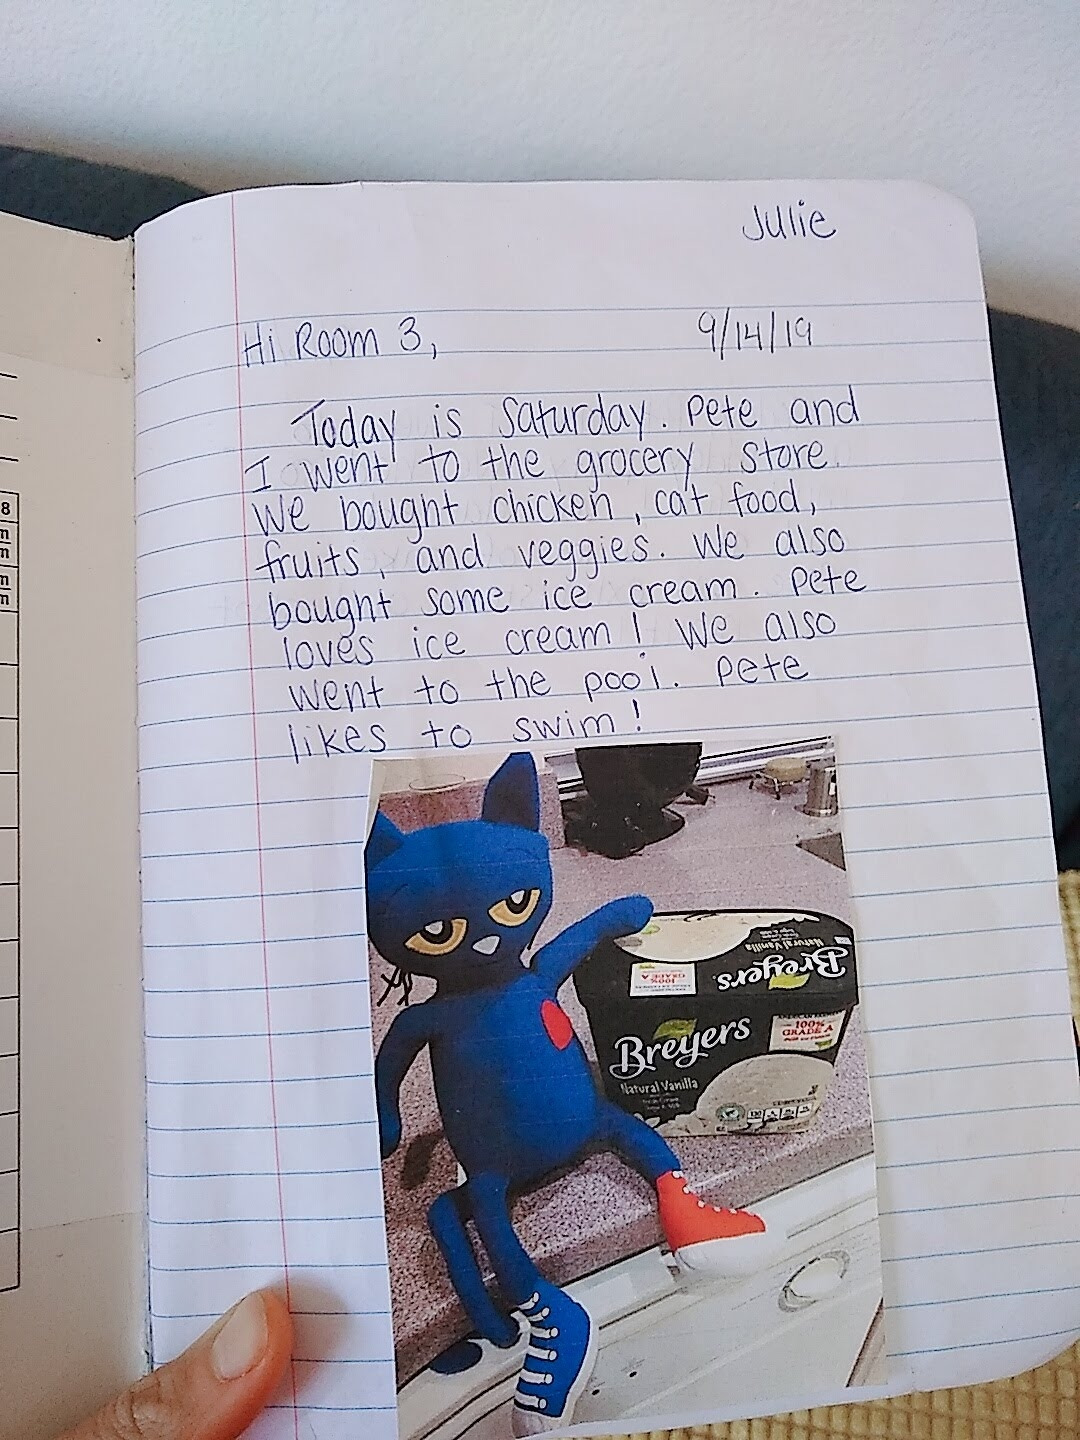 Julie
Hi Room 3, 9/14/19
Today is Saturday. Pete and
I went to the grocery store.
We bought chicken, cat food,
fruits, and veggies. We also
bought some ice cream. Pete
loves ice cream! We also
went to the pool. Pete
likes to swim!
Natural Vanilla
Breyers
100%
GRADE A
Breyers
Natural Vanilla
100%
GRADE A
8
m
m
m
m